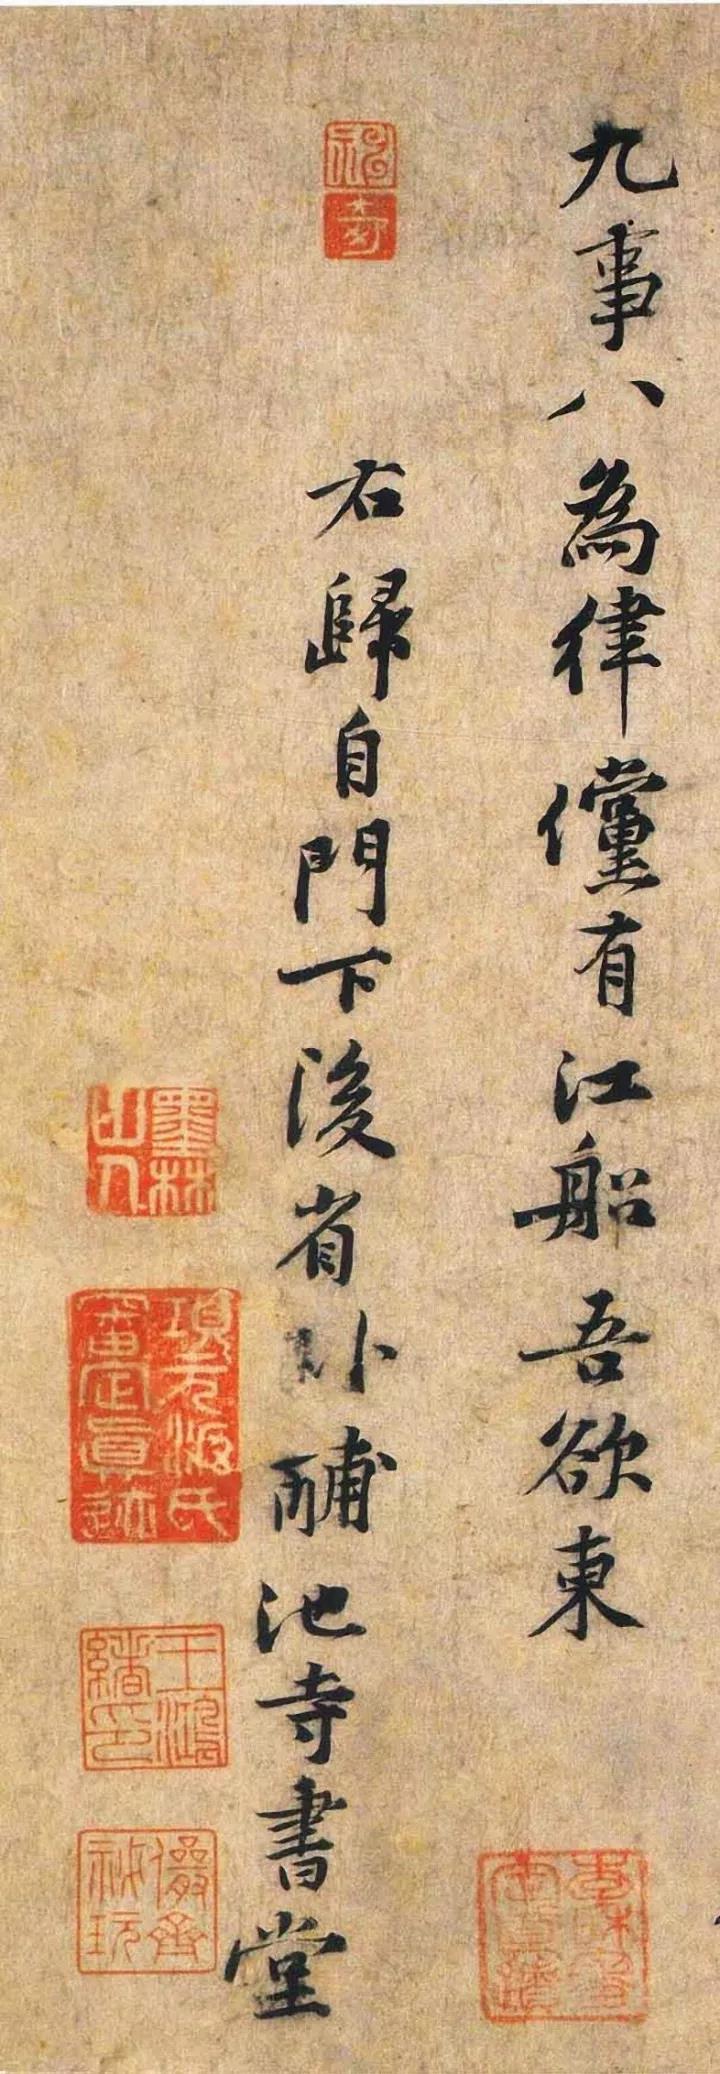 九事八為律儻有江船吾欲東
右歸自門下後省臥酺池寺書堂
神奇
墨林山人
項元汴氏審定真跡
王鴻緒印
儼齋秘玩